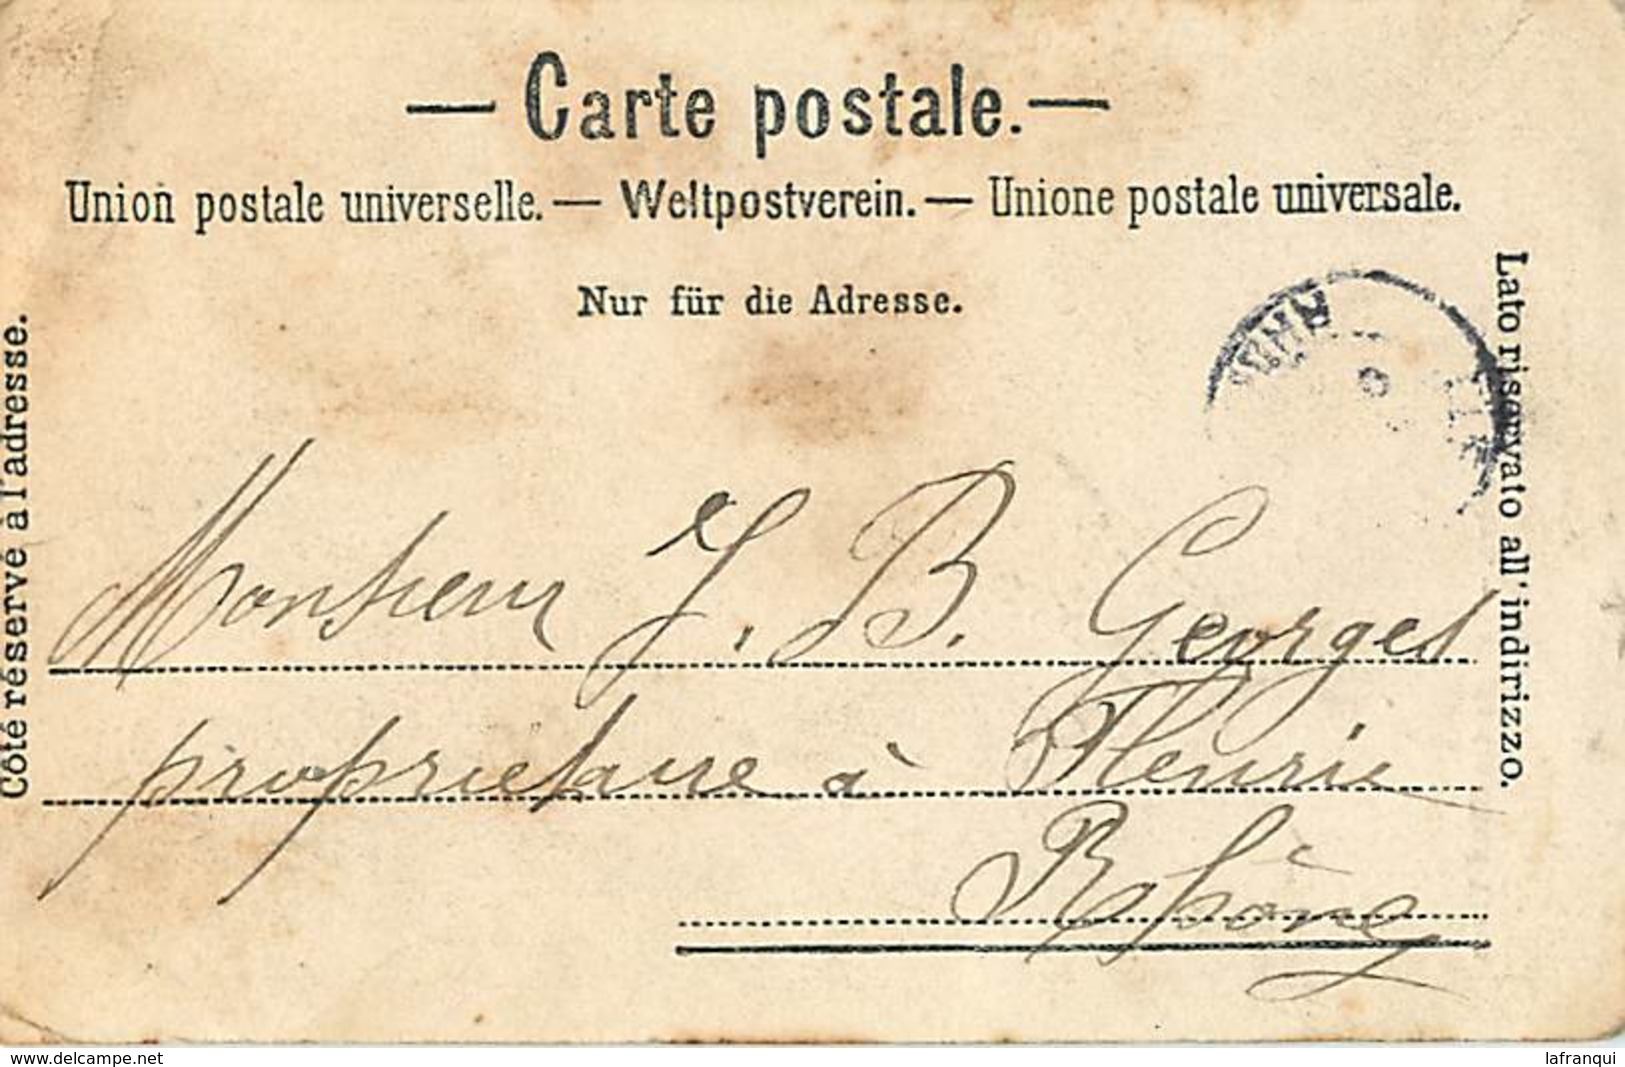 — Carte postale. —
Union postale universelle. — Weltpostverein. — Unione postale universale.
Nur für die Adresse.
Côté réservé à l'adresse.
Lato riservato all' indirizzo.
Monsieur J. B. Georges
propriétaire à Fleurie
Rhône
www.delcampe.net
lafranqui